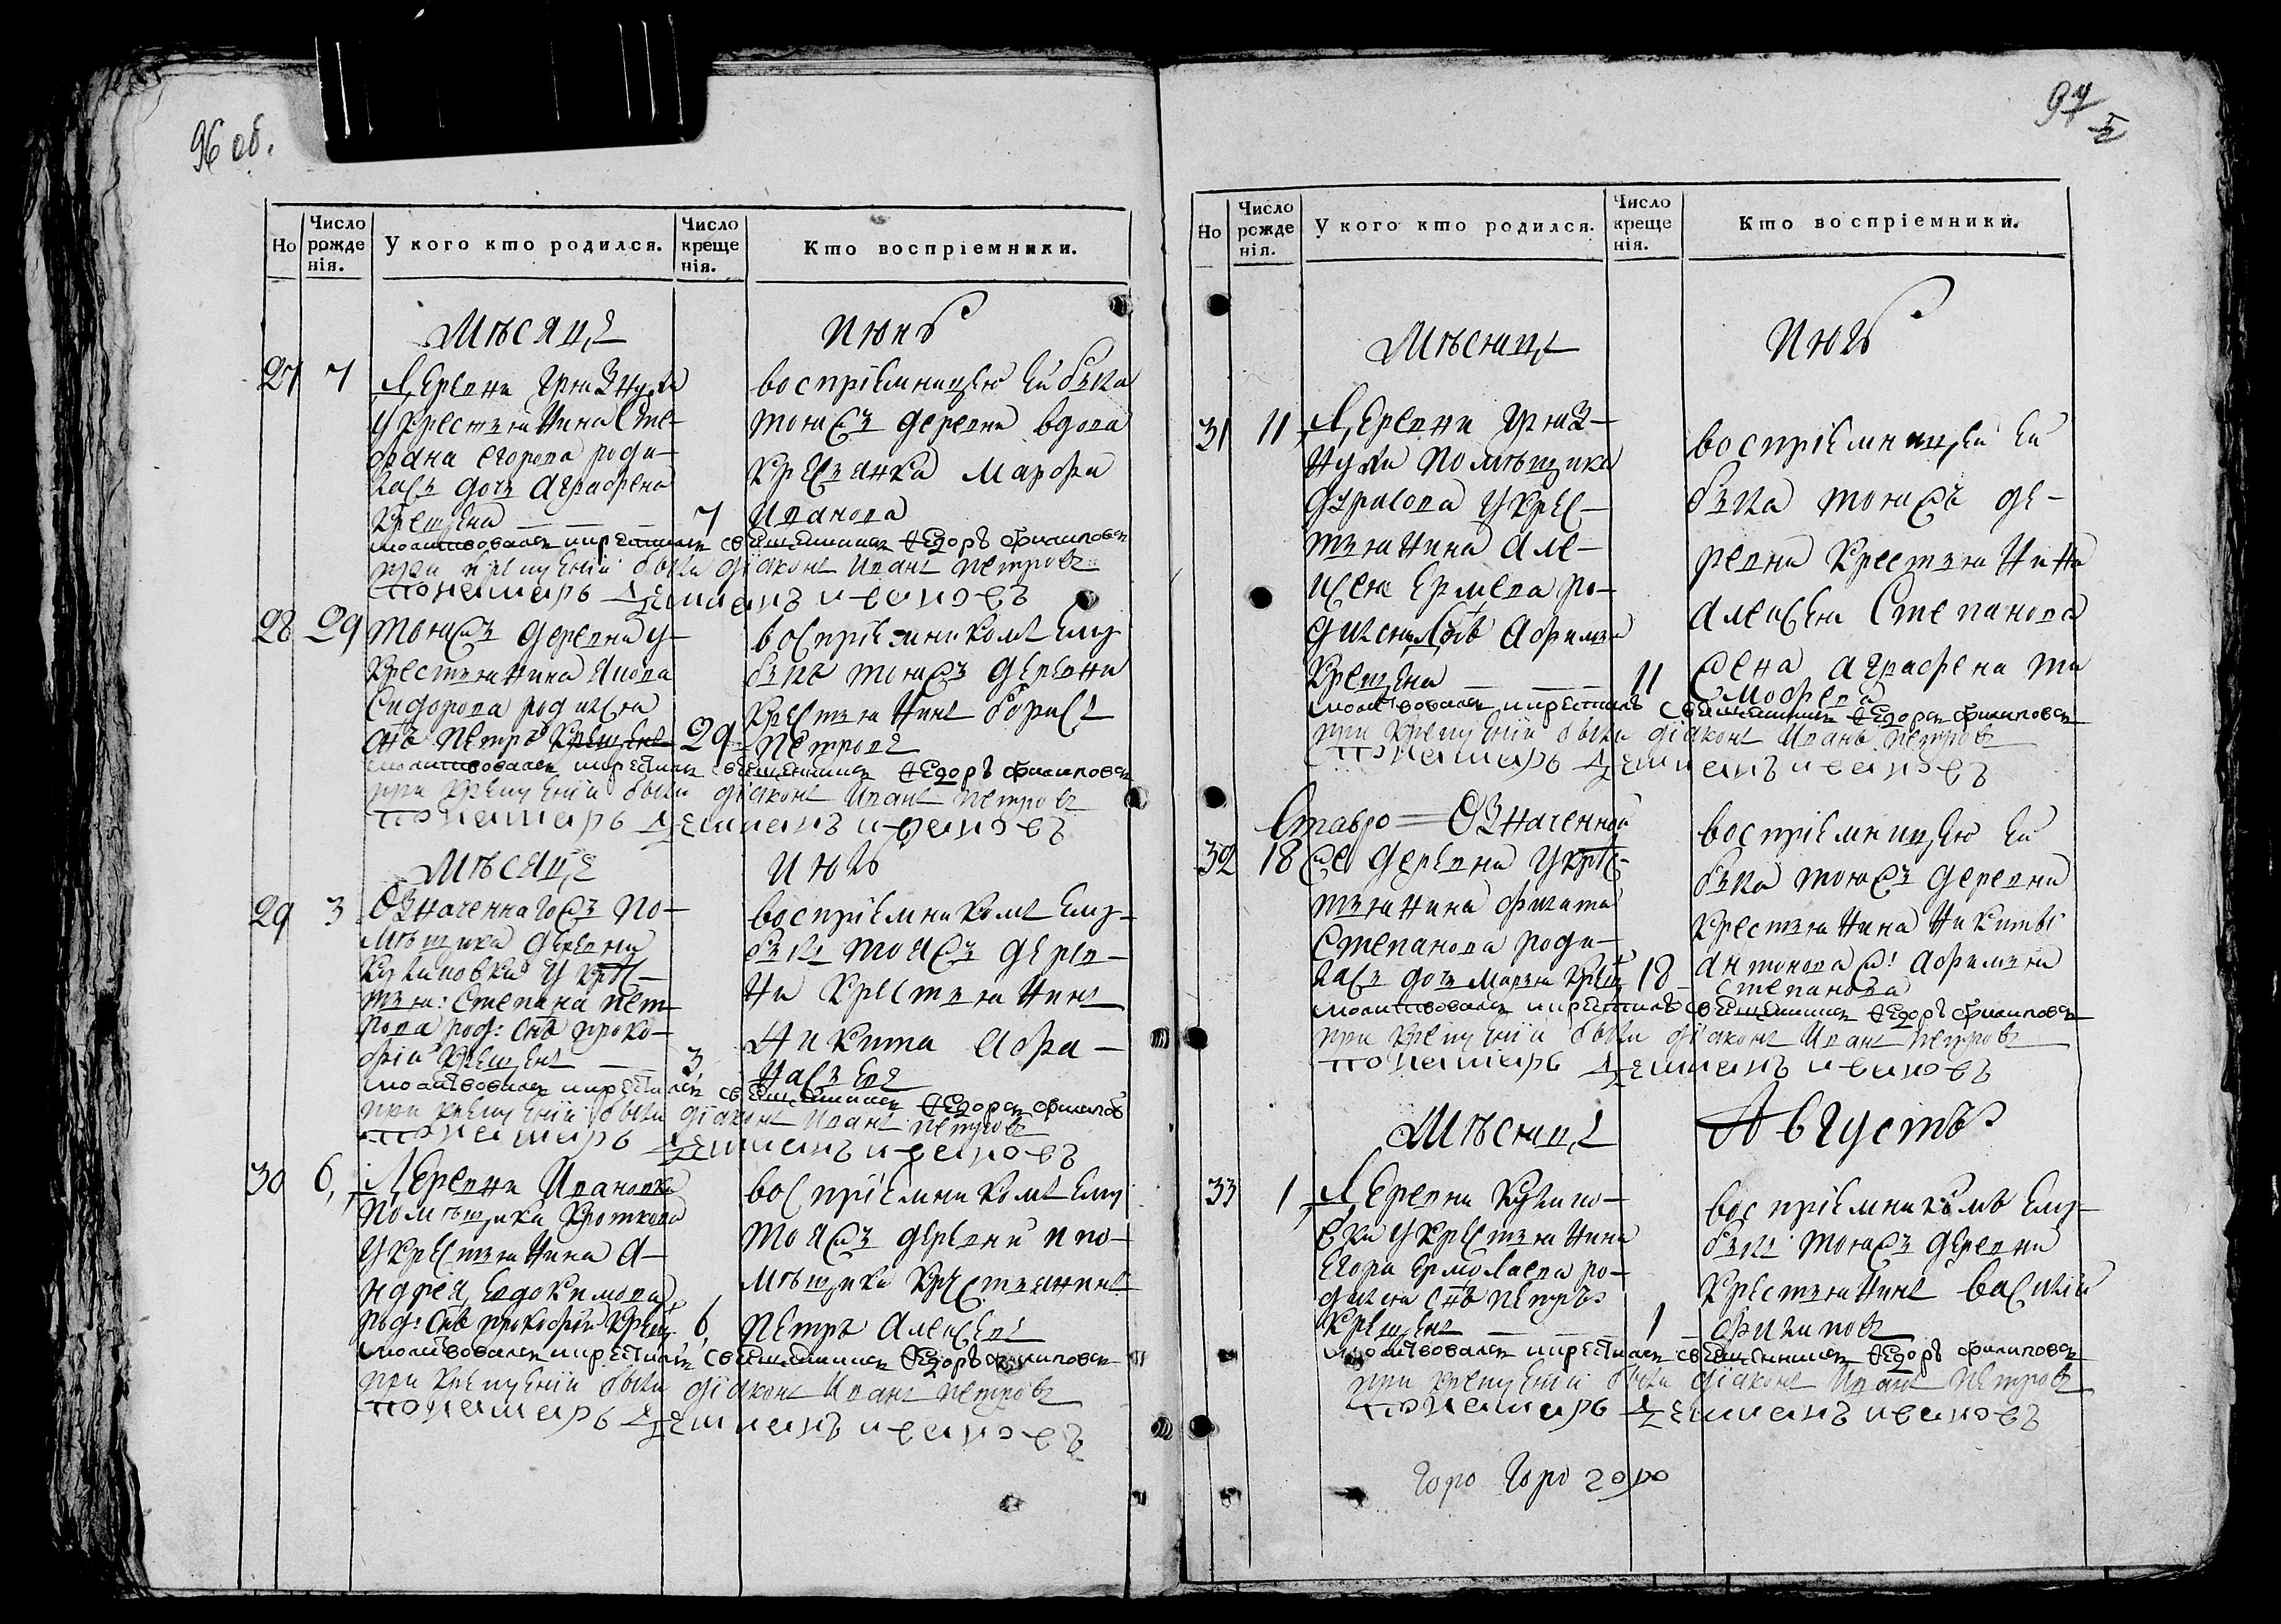 96 об.
Но
Число рожденія.
У кого кто родился.
Число крещенія.
Кто воспріемники.
Мѣсяцъ
июнь
27
7
Деревни Грязнухи
у крестьянина Сте-
фана Егорова роди-
лась дочь Аграфена
крещена — — —
7
воспріемницею ей была
тояжъ деревни вдова
крестьянка Марфа
Иванова
молитвовалъ и крестилъ священникъ Федоръ Филиповъ
при крещеніи были діаконъ Иванъ Петровъ
пономарь Демианъ Ивановъ
28
29
тояжъ деревни у
крестьянина Якова
Сидорова родился
снъ Петръ крещенъ
29
воспріемникомъ ему
былъ тояжъ деревни
крестьянинъ Борисъ
Петровъ
молитвовалъ и крестилъ священникъ Федоръ Филиповъ
при крещеніи были діаконъ Иванъ Петровъ
пономарь Демианъ Ивановъ
Мѣсяцъ
июль
29
3
Означеннагожъ по-
мѣщика деревни
Кулиповки у кре-
стьян: Степана Пет-
рова род: снъ Проко-
фій крещенъ — —
3
воспріемникомъ ему
былъ тояжъ дерев-
ни крестьянинъ
Никита Афа-
насьевъ
молитвовалъ и крестилъ священникъ Федоръ Филиповъ
при крещеніи были діаконъ Иванъ Петровъ
пономарь Демианъ Ивановъ
30
6
Деревни Ивановки
помѣщика Кроткова
у крестьянина А-
ндрея Евдокимова
род: снъ Прокофій крещ
6
воспріемникомъ ему
тояжъ деревни и по-
мѣщика крестьянинъ
Петръ Алексеевъ
молитвовалъ и крестилъ священникъ Федоръ Филиповъ
при крещеніи были діаконъ Иванъ Петровъ
пономарь Демианъ Ивановъ
97
Но
Число рожденія.
У кого кто родился.
Число крещенія.
Кто воспріемники.
Мѣсяцъ
июль
31
11
Деревни Гряз-
нухи помѣщика
Дурасова у крес-
тьянина Але-
ксея Ермеева ро-
дилась Афимья
крещена — — —
11
воспріемницей ей
была тояжъ де-
ревни крестьянина
Алексея Степанова
жена Аграфена Ти-
мофеева
молитвовалъ и крестилъ священникъ Федоръ Филиповъ
при крещеніи были діаконъ Иванъ Петровъ
пономарь Демианъ Ивановъ
32
18
Ставро= Означенной
же деревни у кре-
стьянина Филата
Степанова роди-
лась дочь Марья крещ
18
воспріемницею ей
была тояжъ деревни
крестьянина Никиты
Антонова ж: Афимья
Степанова
молитвовалъ и крестилъ священникъ Федоръ Филиповъ
при крещеніи были діаконъ Иванъ Петровъ
пономарь Демианъ Ивановъ
Мѣсяцъ
Августъ
33
1
Деревни Кулипо-
вки у крестьянина
Егора Ермолаева ро-
дился снъ Петръ
крещенъ — —
1
воспріемникомъ ему
былъ тояжъ деревни
крестьянинъ Василій
Филиповъ
молитвовалъ и крестилъ священникъ Федоръ Филиповъ
при крещеніи были діаконъ Иванъ Петровъ
пономарь Демианъ Ивановъ